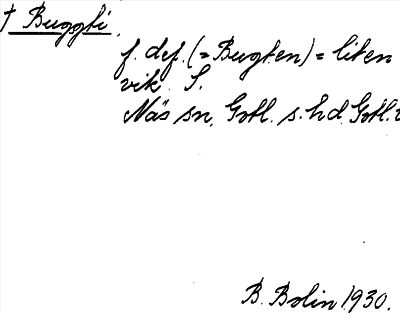 † Buggti.
f. def. (= Bugten) = liten
vik. S.
Näs sn, Gotl. s. hd. Gotl.
B. Bolin 1930.